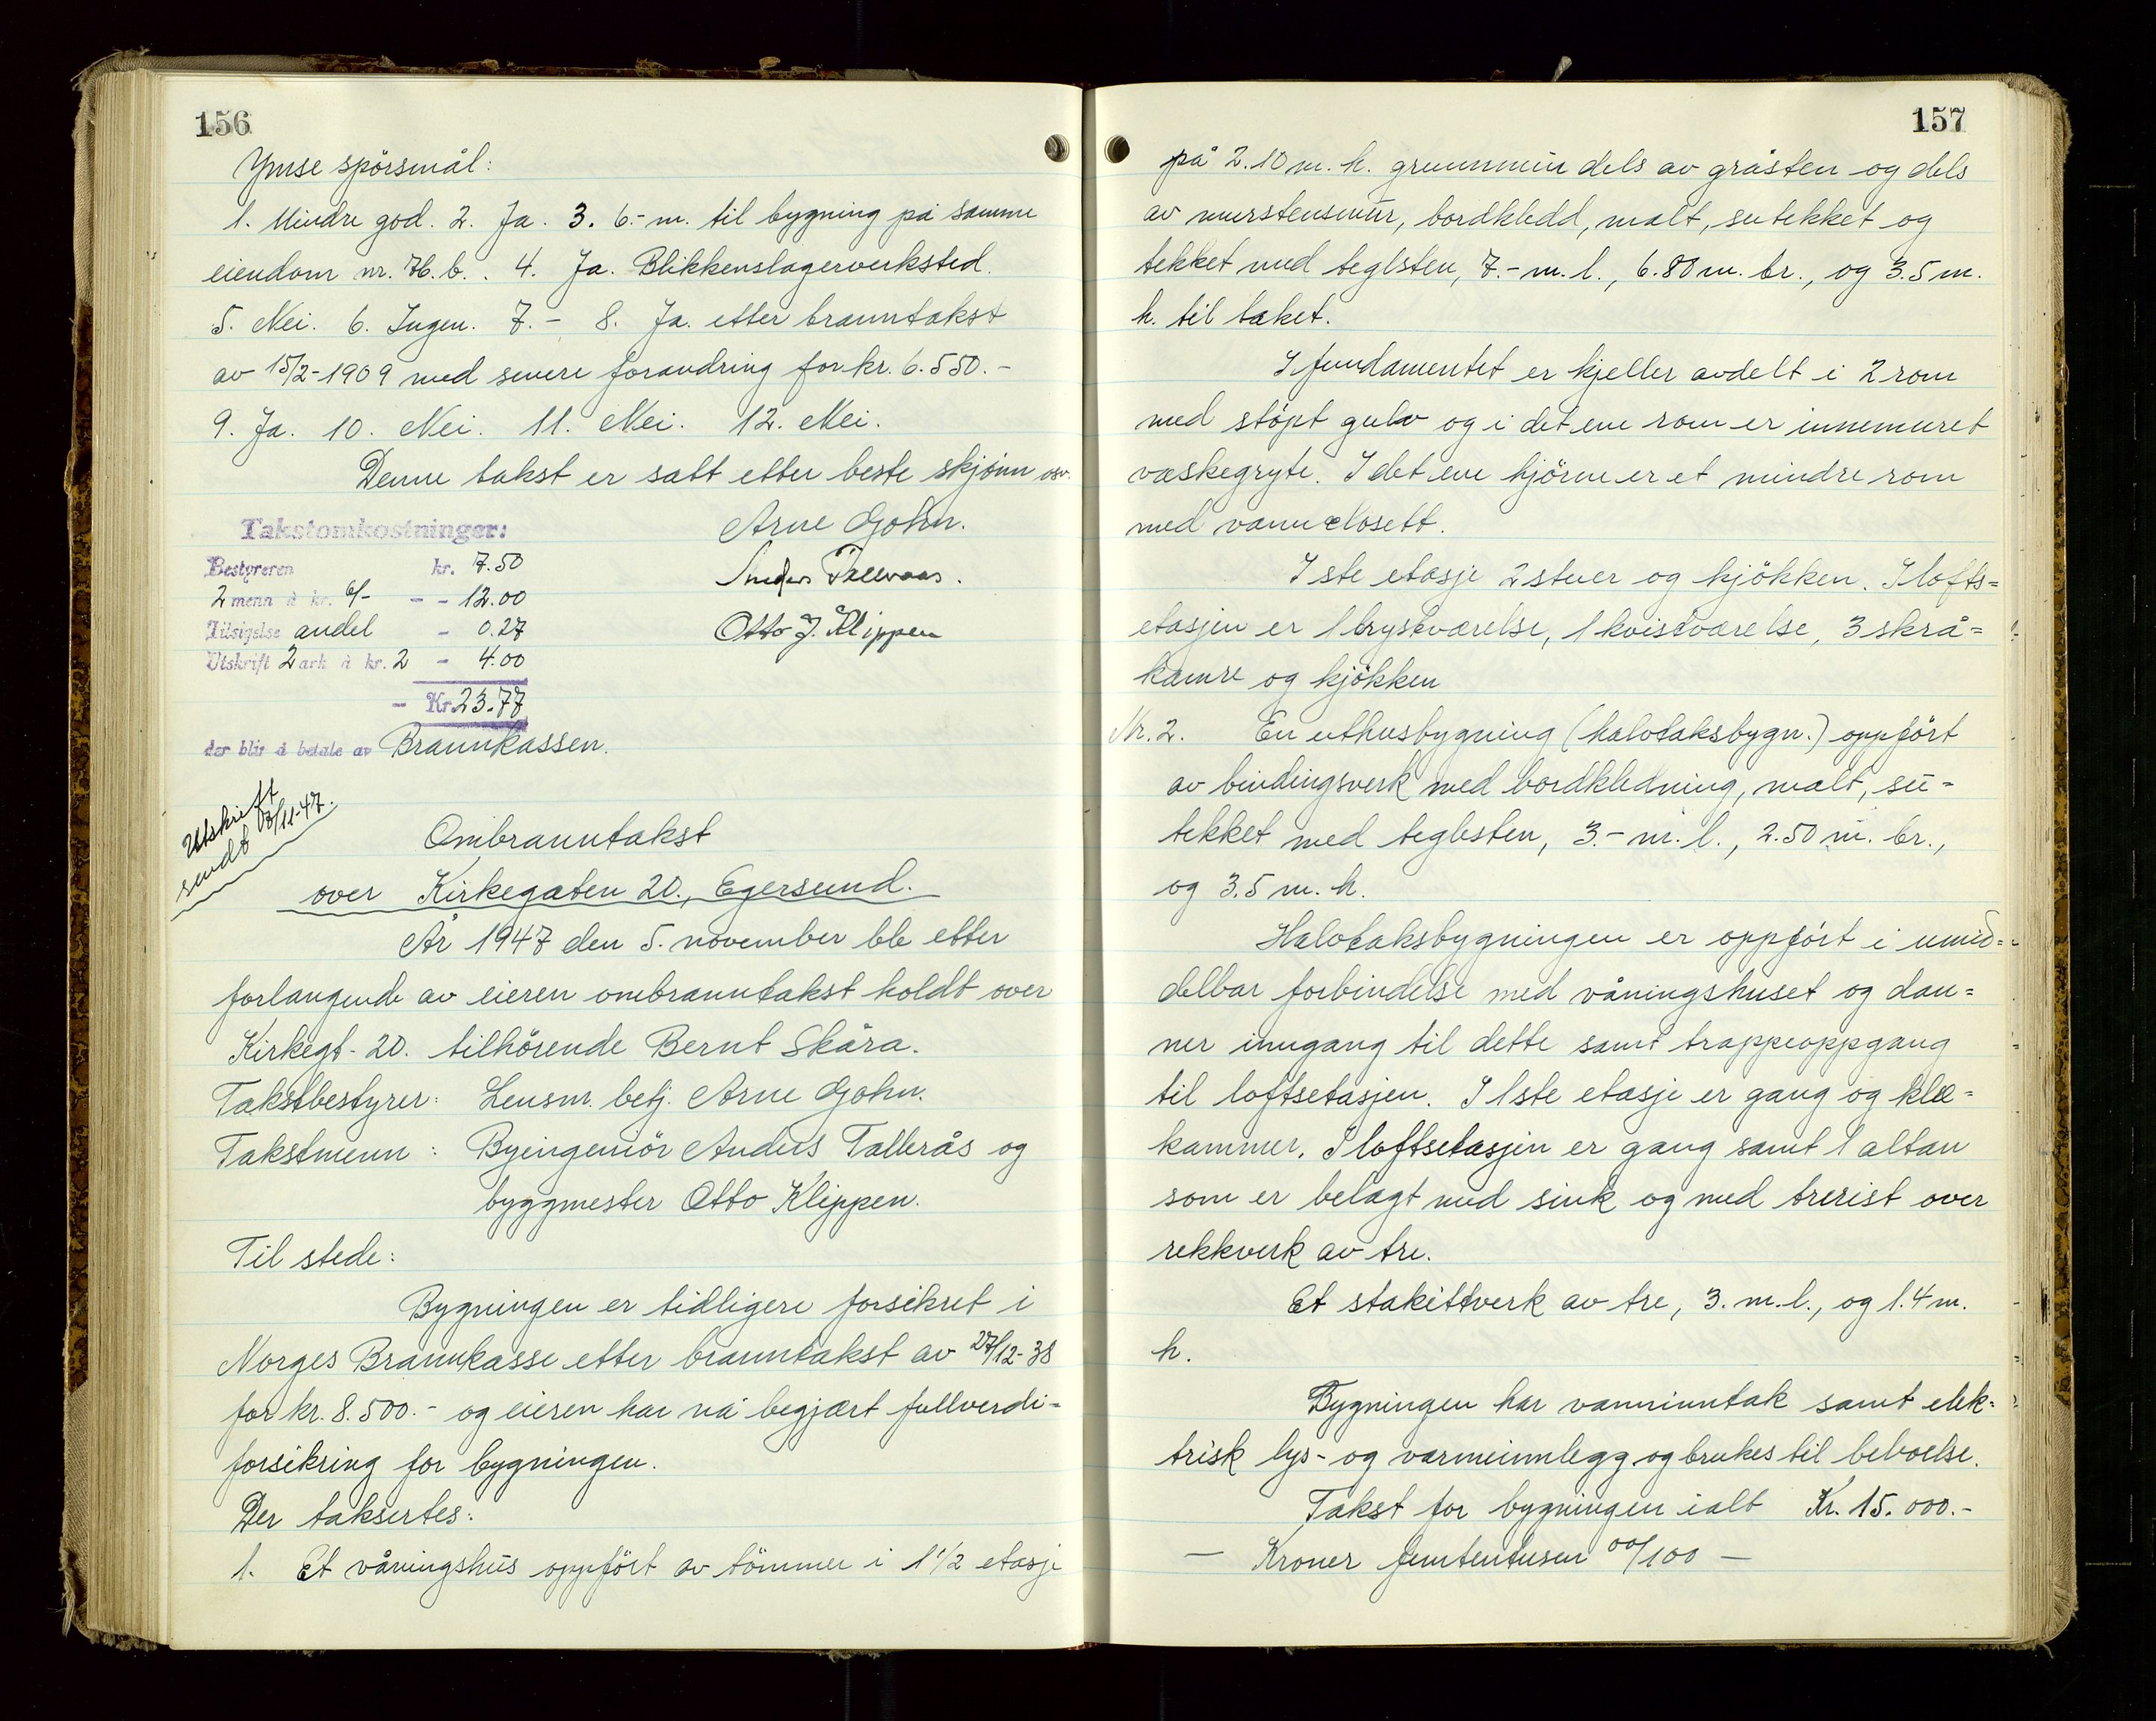 156
Ymse spörsmål:
1. Mindre god. 2. Ja. 3. 6.- m. til bygning på samme
eiendom nr. 76.b.. 4. Ja. Blikkenslagerverksted.
5. Nei. 6. Ingen. 7. - 8. Ja. etter branntakst
av 15/2-1909 med senere forandring for kr. 6.550.-
9. Ja. 10. Nei. 11. Nei. 12. Nei.
Denne takst er satt etter beste skjönn osv.
Arne Gjohn.
Takstomkostninger:
Bestyreren kr. 7.50
Anders Tallraas.
2 menn à kr. 6/- - - 12.00
Tilsigelse andel - 0.27
Otto J. Klippen
Utskrift 2 ark à kr. 2 - 4.00
- Kr. 23.77
der blir å betale av Brannkassen.
Utskrift
sendt 13/11-47.
Ombranntakst
over Kirkegaten 20., Egersund.
År 1947 den 5. november ble etter
forlangende av eieren ombranntakst holdt over
Kirkegt. 20. tilhörende Bernt Skåra.
Takstbestyrer: Lensm. betj. Arne Gjohn.
Takstmenn: Byeingeniör Anders Tallerås og
byggmester Otto Klippen.
Til stede:
Bygningen er tidligere forsikret i
Norges Brannkasse etter branntakst av 27/12-38
for kr. 8.500.- og eieren har nå begjært fullverdi=
forsikring for bygningen.
Der taksertes:
1. Et våningshus oppfört av tömmer i 1 1/2 etasje
157
på 2.10 m. h. grunnmur dels av gråsten og dels
av murstensmur, bordkledd, malt, sutekket og
tekket med teglsten, 7.- m. l., 6.80 m. br., og 3.5 m.
h. til taket.
I fundamentet er kjeller avdelt i 2 rom
med stöpt gulv og i det ene rom er innemuret
vaskegryte. I det ene hjörne er et mindre rom
med vannclosett.
I ste etasje 2 stuer og kjökken. I lofts=
etasjen er 1 brystværelse, 1 kvistværelse, 3 skrå=
kamre og kjökken
Nr. 2. En uthusbygning (halvtaksbygn.) oppfört
av bindingsverk med bordkledning, malt, su=
tekket med teglsten, 3.- m. l., 2.50 m. br.,
og 3.5 m. h.
Halvtaksbygningen er oppfört i umid=
delbar forbindelse med våningshuset og dan=
ner inngang til dette samt trappeoppgang
til loftsetasjen. I 1ste etasje er gang og kle=
kammer. I loftsetasjen er gang samt 1 altan
som er belagt med sink og med trerist over
rekkverk av tre.
Et stakittverk av tre, 3. m. l., og 1.4 m.
h.
Bygningen har vanninntak samt elek=
trisk lys- og varmeinnlegg og brukes til beboelse.
Takst for bygningen ialt Kr. 15.000.-
— Kroner femtentusen 00/100 —